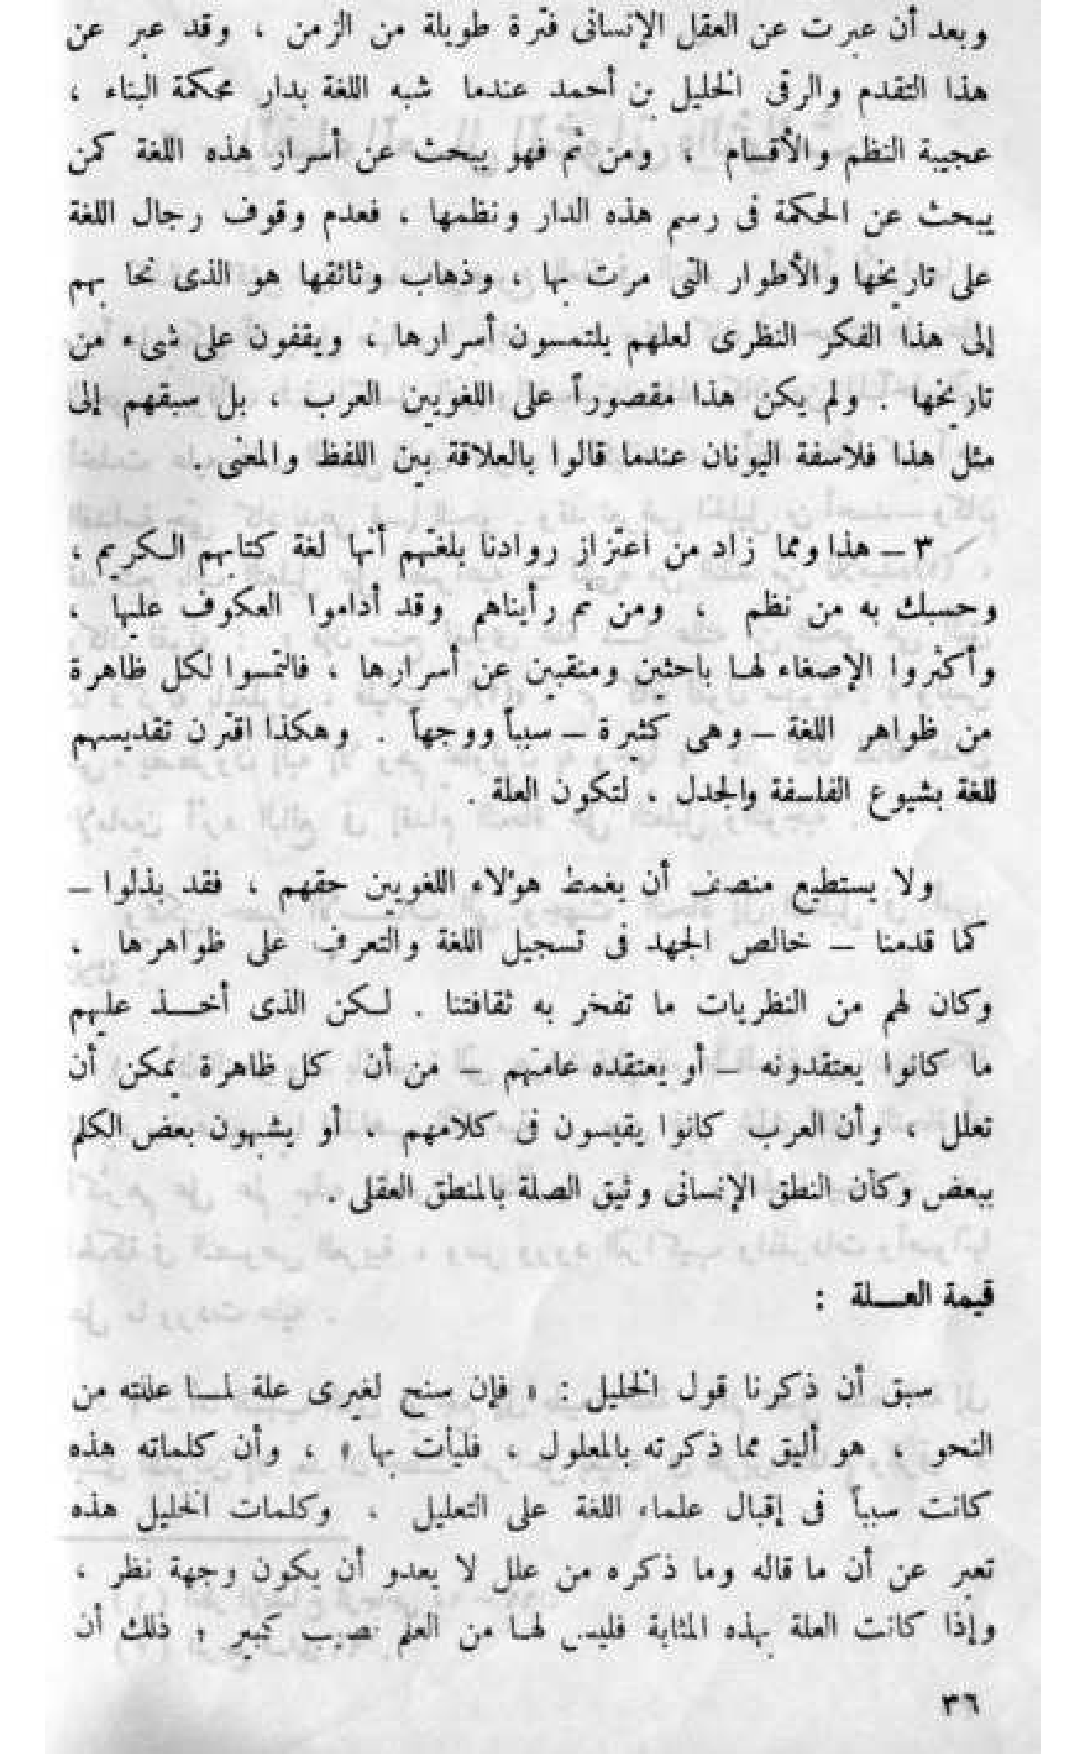 وبعد أن عبرت عن العقل الإنسانى فترة طويلة من الزمن ، وقد عبر عن
هذا التقدم والرقى الخليل بن أحمد عندما شبه اللغة بدار محكمة البناء ،
عجيبة النظم والأقسام ، ومن ثم فهو يبحث عن أسرار هذه اللغة كمن
يبحث عن الحكمة فى رسم هذه الدار ونظمها ، فعدم وقوف رجال اللغة
على تاريخها والأطوار التى مرت بها ، وذهاب وثائقها هو الذى نحا بهم
إلى هذا الفكر النظرى لعلهم يلتمسون أسرارها ، ويقفون على شىء من
تاريخها . ولم يكن هذا مقصوراً على اللغويين العرب ، بل سبقهم إلى
مثل هذا فلاسفة اليونان عندما قالوا بالعلاقة بين اللفظ والمعنى .
٣ – هذا ومما زاد من اعتزاز روادنا بلغتهم أنها لغة كتابهم الكريم ،
وحسبك به من نظم ، ومن ثم رأيناهم وقد أداموا العكوف عليها ،
وأكثروا الإصغاء لها باحثين ومنقبين عن أسرارها ، فالتمسوا لكل ظاهرة
من ظواهر اللغة – وهى كثيرة – سبباً ووجهاً . وهكذا اقترن تقديسهم
للغة بشيوع الفلسفة والجدل ، لتكون العلة .
ولا يستطيع منصف أن يغمط هؤلاء اللغويين حقهم ، فقد بذلوا –
كما قدمنا – خالص الجهد فى تسجيل اللغة والتعرف على ظواهرها ،
وكان لهم من النظريات ما تفخر به ثقافتنا . لكن الذى أخذ عليهم
ما كانوا يعتقدونه – أو يعتقده عامتهم – من أن كل ظاهرة يمكن أن
تعلل ، وأن العرب كانوا يقيسون فى كلامهم ، أو يشبهون بعض الكلم
ببعض وكأن النطق الإنسانى وثيق الصلة بالمنطق العقلى .
قيمة العلة :
سبق أن ذكرنا قول الخليل : « فإن سنح لغيرى علة لما عللته من
النحو ، هو أليق مما ذكرته بالمعلول ، فليأت بها » ، وأن كلماته هذه
كانت سبباً فى إقبال علماء اللغة على التعليل . وكلمات الخليل هذه
تعبر عن أن ما قاله وما ذكره من علل لا يعدو أن يكون وجهة نظر ،
وإذا كانت العلة بهذه المثابة فليس لها من العلم نصيب كبير ؛ ذلك أن
٣٦